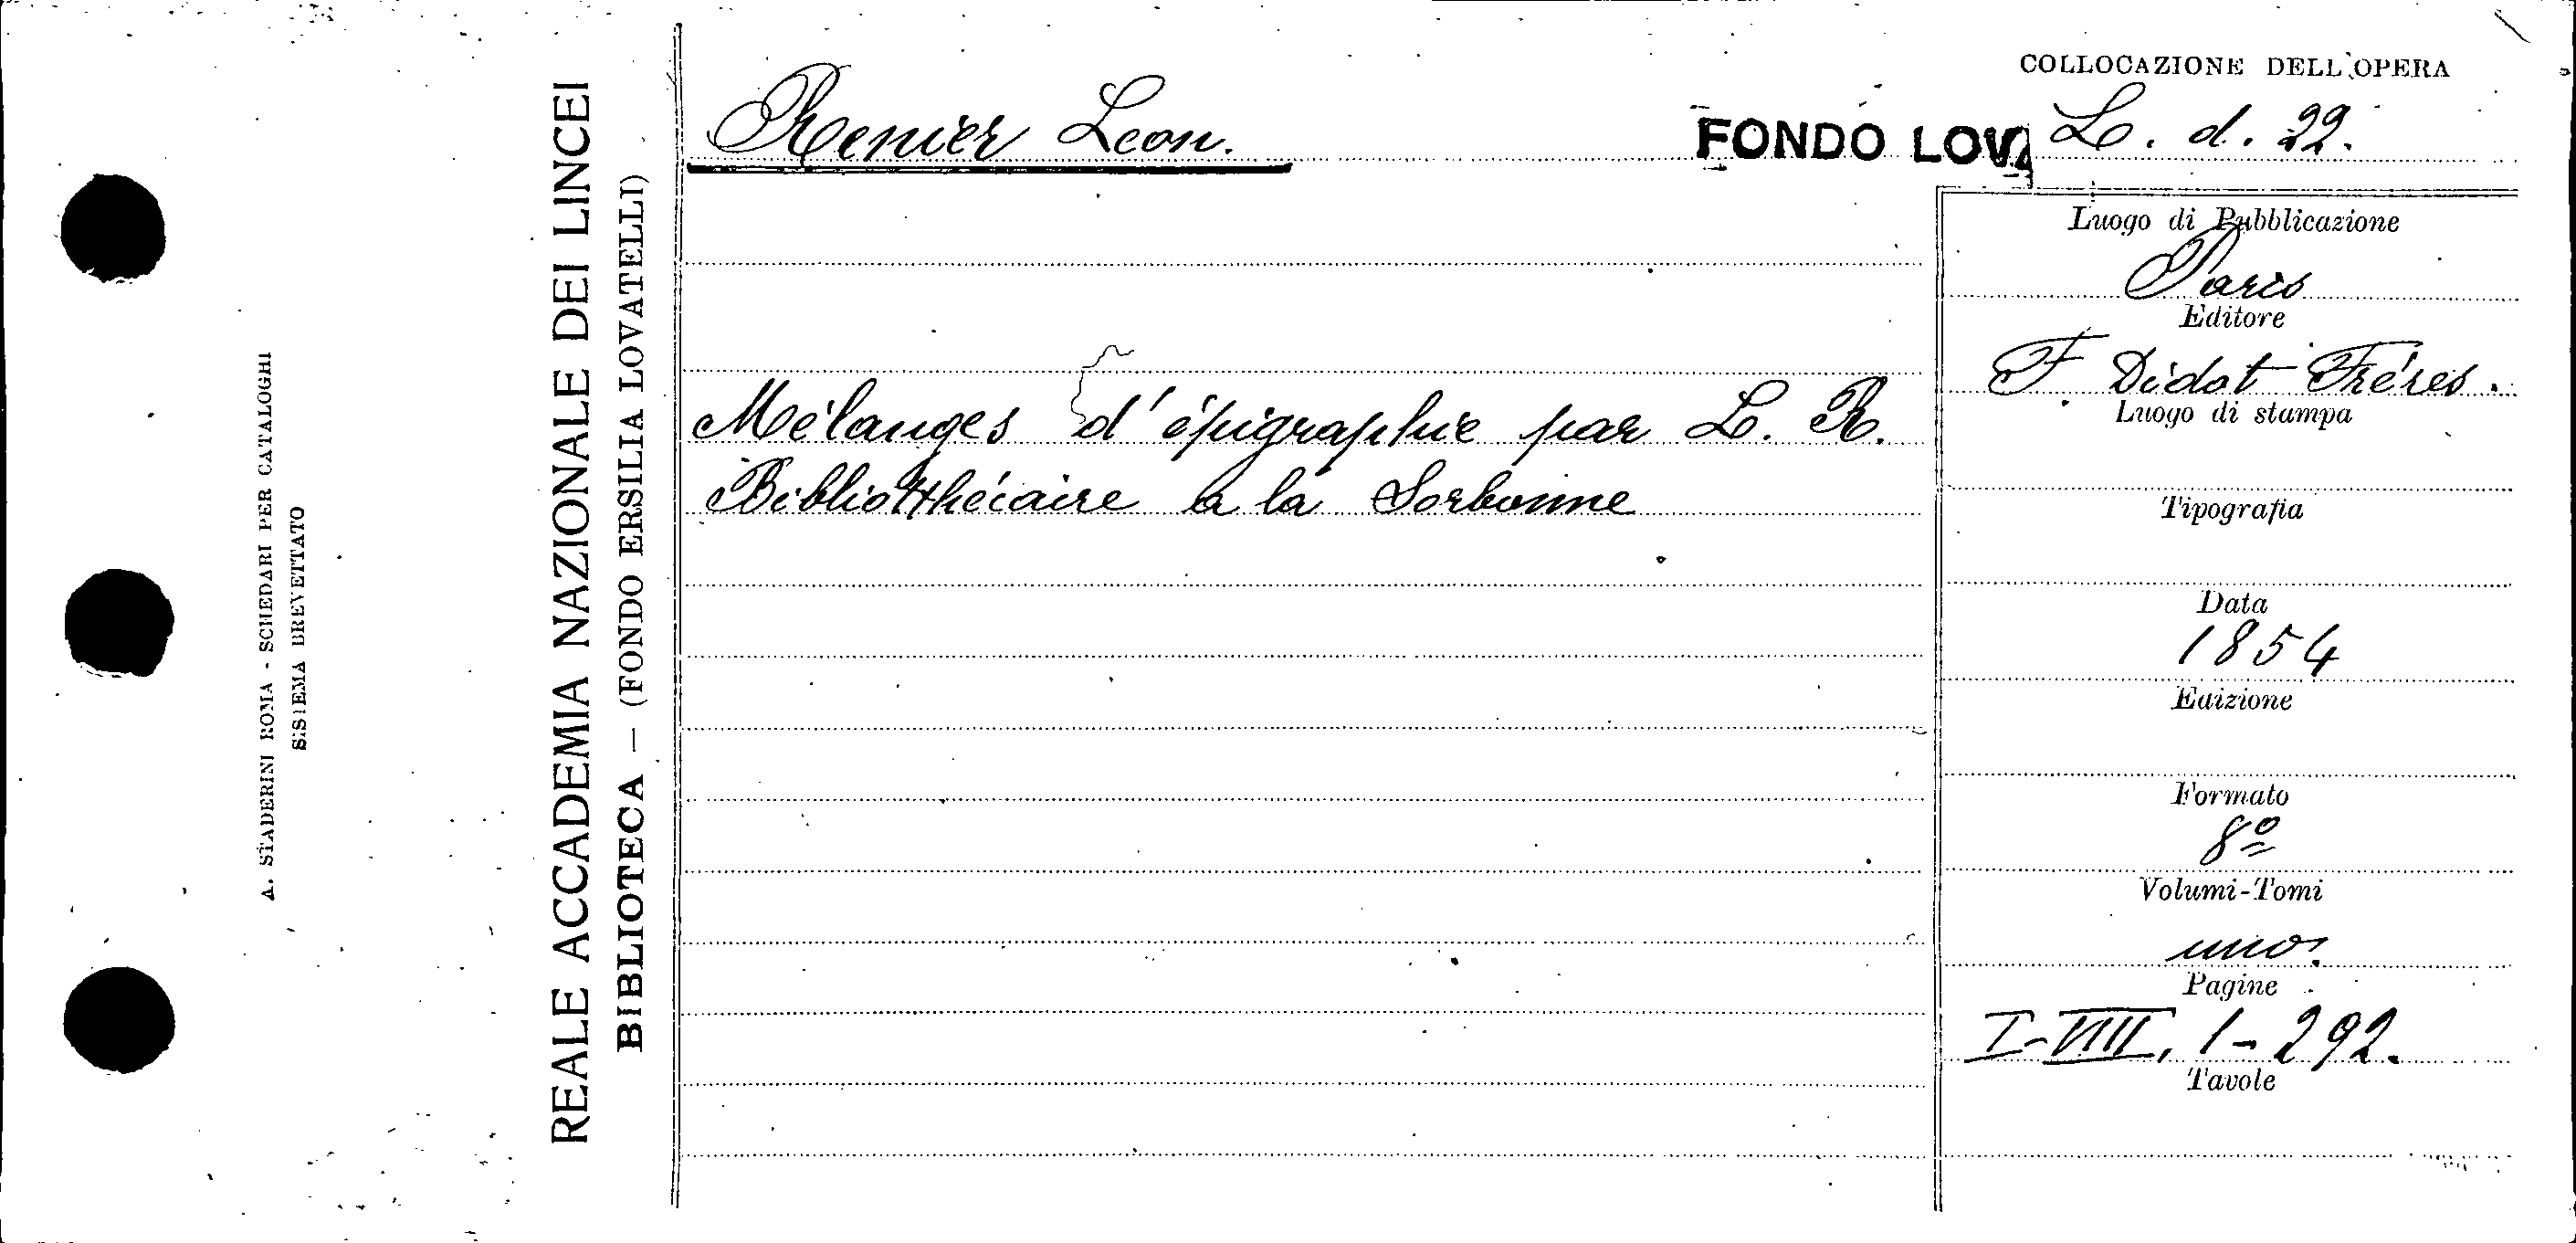 A. STADERINI ROMA - SCHEDARI PER CATALOGHI
SISTEMA BREVETTATO
REALE ACCADEMIA NAZIONALE DEI LINCEI
BIBLIOTECA — (FONDO ERSILIA LOVATELLI)
Renier Leon.
Mélanges d'épigraphie par L. R.
Bibliotthécaire a la Sorbonne
FONDO LOVA
COLLOCAZIONE DELL'OPERA
L. d. 22.
Luogo di Pubblicazione
Paris
Editore
F Didot Fréres.
Luogo di stampa
Tipografia
Data
1854
Edizione
Formato
8º
Volumi-Tomi
uno.
Pagine
I-VIII, 1-292.
Tavole